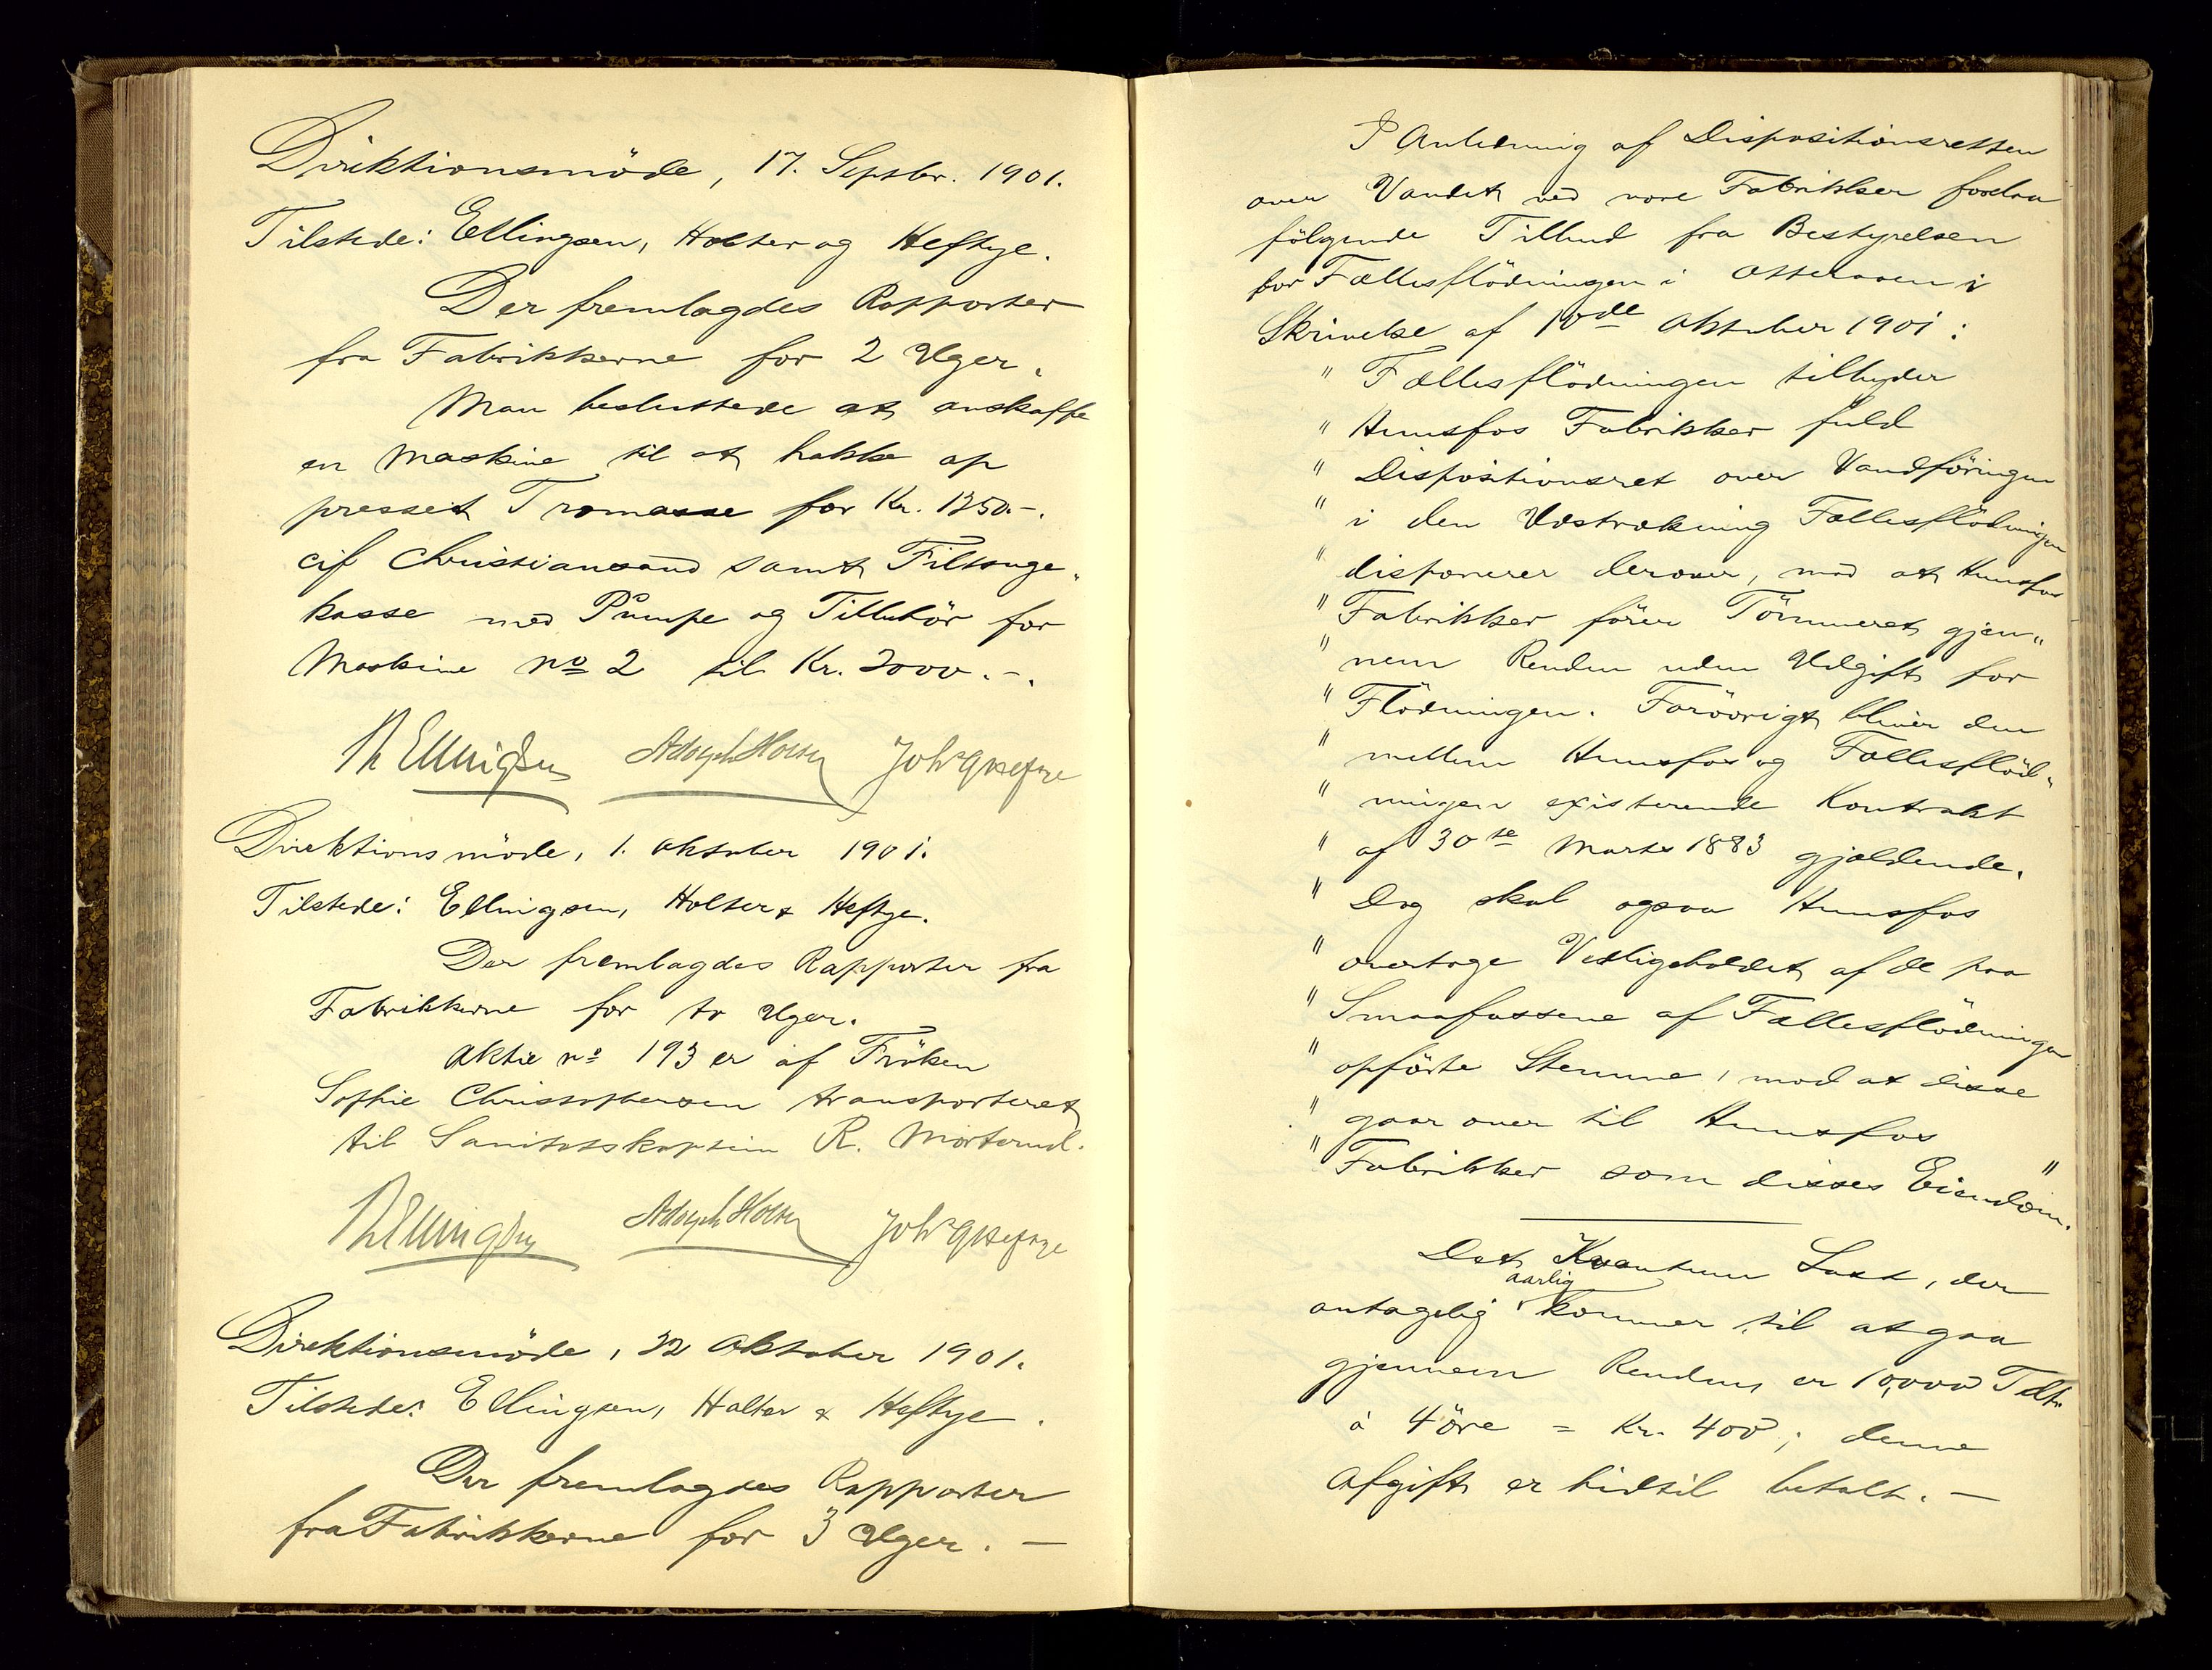 Direktionsmöde, 17. Septbr. 1901.
Tilstede: Ellingsen, Holter og Heftye.
Der fremlagdes Rapporter
fra Fabrikkerne for 2 Uger.
Man besluttede at anskaffe
en Maskine til at hakke op
presset Tromasse for Kr. 1350.-.
cif Christiansand samt Filtsuge"
kasse med Pumpe og Tilbehör for
Maskine No 2 til Kr. 2000.-.
Th Ellingsen Adolph Holter Joh's G Heftye
Direktionsmöde, 1. Oktober 1901.
Tilstede: Ellingsen, Holter & Heftye.
Der fremlagdes Rapporter fra
Fabrikkerne for to Uger.
Aktie no 193 er af Fröken
Sophie Christophersen transporteret
til Sanitetskaptein R. Morterud.
Th Ellingsen Adolph Holter Joh's G Heftye
Direktionsmöde, 22 Oktober 1901.
Tilstede: Ellingsen, Holter & Heftye.
Der fremlagdes Rapporter
fra Fabrikkerne for 3 Uger. —
I Anledning af Dispositionsretten
over Vandet ved vore Fabrikker forelaa
fölgende Tilbud fra Bestyrelsen
for Fællesflödningen i Otteraaen i
Skrivelse af 10de Oktober 1901:
" Fællesflödningen tilbyder
" Hunsfos Fabrikker fuld
" Dispositionsret over Vandföringen
" i den Udstrækning Fællesflödningen
" disponerer derover, mod at Hunsfos
" Fabrikker förer Tömmeret gjen"
" nem Renden uden Udgift for
" Flödningen. Forövrigt bliver den
" mellem Hunsfos og Fællesflöd"
" ningen existerende Kontrakt
" af 30te Marts 1883 gjældende.
" Dog skal ogsaa Hunsfos
" overtage Vedligeholdet af de paa
" Smaafossene af Fællesflödningen
" opförte Stemme, mod at disse
" gaar over til Hunsfos
" Fabrikker som disses Eiendom."
Det Kvantum Last, der
antagelig aarlig kommer til at gaa
gjennem Renden, er 10,000 Tylt.
à 4 öre = Kr. 400; denne
Afgift er hidtil betalt. —